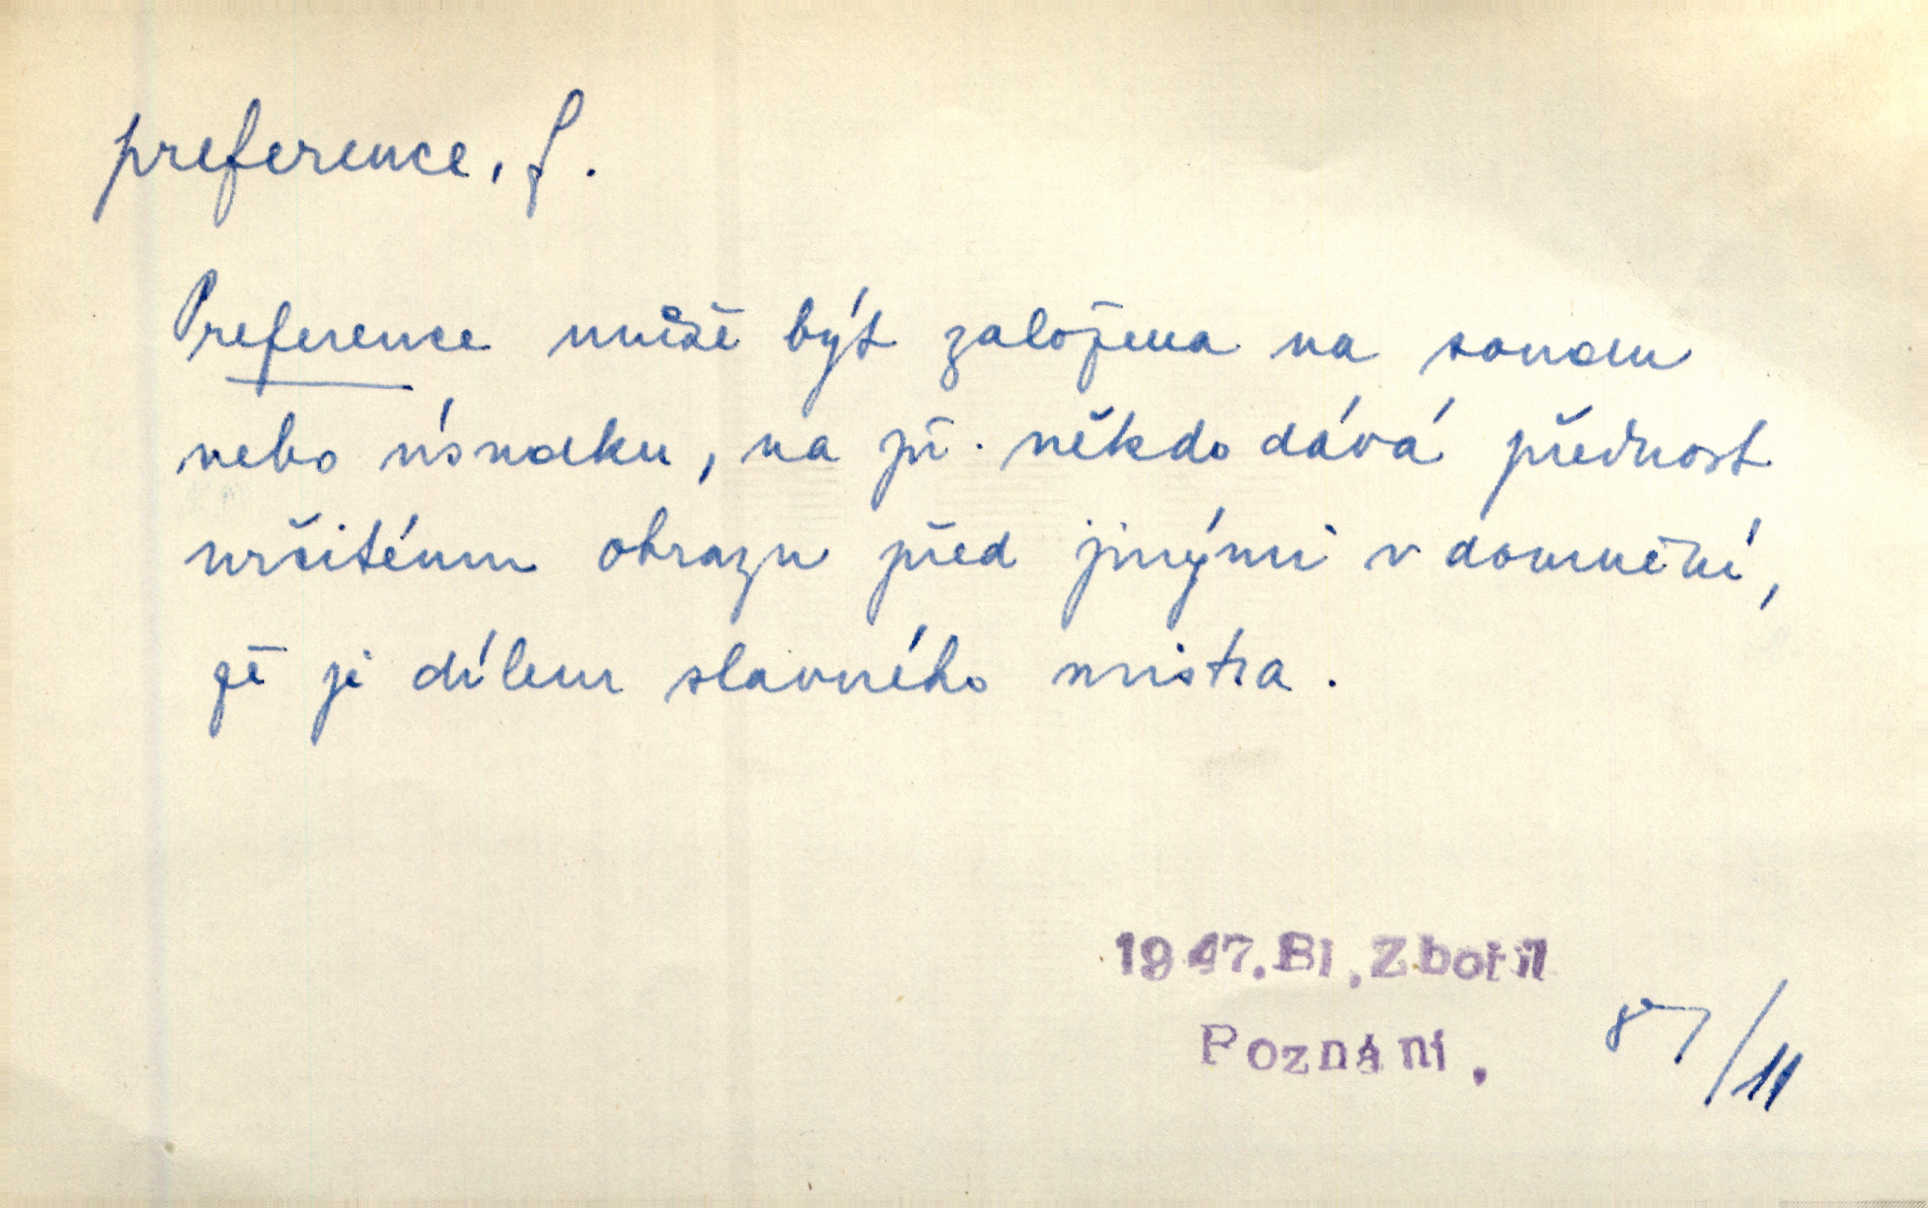 preference, f.
Preference může být založena na soudu
nebo úsudku, na př. někdo dává přednost
určitému obrazu před jinými v domnění,
že je dílem slavného mistra.
1947. Bl. Zbořil
Poznání.
87/11